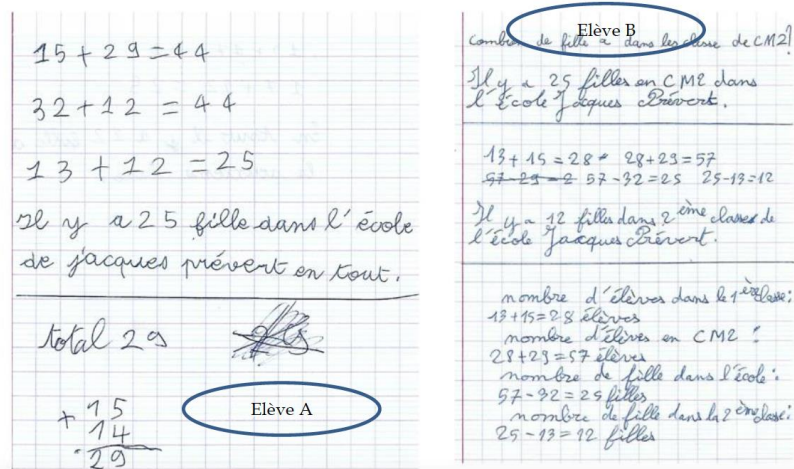 15 + 29 = 44
32 + 12 = 44
13 + 12 = 25
Il y a 25 fille dans l'école
de jacques prévert en tout.
total 29
+ 15
14
29
Elève A
Elève B
combien de fille a dans les classe de CM2?
Il y a 25 filles en CM2 dans
l'école Jacques Prévert.
13 + 15 = 28 28 + 29 = 57
57 - 29 = 2 57 - 32 = 25 25 - 13 = 12
Il y a 12 filles dans 2ème classe de
l'école Jacques Prévert.
nombre d'élèves dans le 1ère classe:
13 + 15 = 28 élèves
nombre d'élèves en CM2 :
28 + 29 = 57 élèves
nombre de fille dans l'école:
57 - 32 = 25 filles
nombre de fille dans la 2ème classe:
25 - 13 = 12 filles